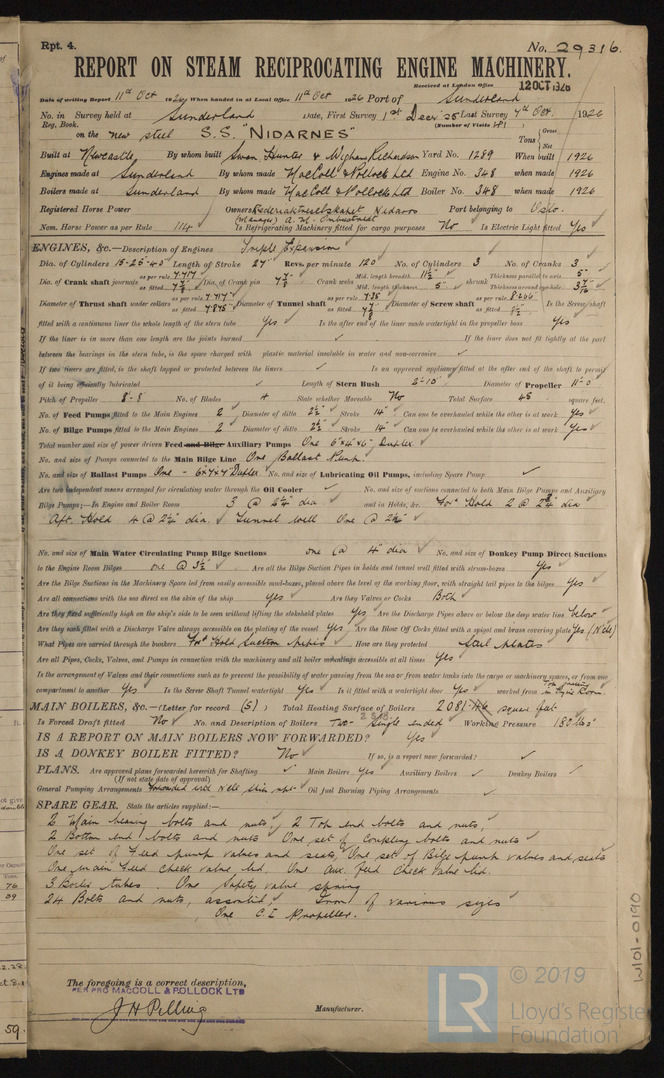 Rpt. 4.
No. 29316.
REPORT ON STEAM RECIPROCATING ENGINE MACHINERY.
Received at London Office 12 OCT 1926
Date of writing Report 11th Oct 1926 When handed in at Local Office 11th Oct 1926 Port of Sunderland
No. in Survey held at Sunderland Date, First Survey 1st Decr 25 Last Survey 7th Oct. 1926
Reg. Book. (Number of Visits 181)
on the new steel S.S. "NIDARNES" Tons Gross Net
Built at Newcastle By whom built Swan Hunter & Wigham Richardson Yard No. 1289 When built 1926
Engines made at Sunderland By whom made MacColl & Pollock Ltd Engine No. 348 when made 1926
Boilers made at Sunderland By whom made MacColl & Pollock Ltd Boiler No. 348 when made 1926
Registered Horse Power Owners Port belonging to Oslo.
Nom. Horse Power as per Rule 114 Is Refrigerating Machinery fitted for cargo purposes No Is Electric Light fitted Yes
ENGINES, &c.—Description of Engines Triple Expansion
Dia. of Cylinders 15-25-40 Length of Stroke 27" Revs. per minute 120 No. of Cylinders 3 No. of Cranks 3
Dia. of Crank shaft journals as per rule 7.717" as fitted 7 7/8" Dia. of Crank pin 7 7/8" Crank webs Mid. length breadth 11 1/2" Mid. length thickness 5" shrunk Thickness parallel to axis 5" Thickness around eyehole 3 7/16"
Diameter of Thrust shaft under collars as per rule 7.717" as fitted 7.875" Diameter of Tunnel shaft as per rule 7.35 as fitted 7 7/8 Diameter of Screw shaft as per rule 8.266" as fitted 8 1/2" Is the Screw shaft
fitted with a continuous liner the whole length of the stern tube Yes Is the after end of the liner made watertight in the propeller boss Yes
If the liner is in more than one length are the joints burned If the liner does not fit tightly at the part
between the bearings in the stern tube, is the space charged with plastic material insoluble in water and non-corrosive
If two liners are fitted, is the shaft lapped or protected between the liners Is an approved appliance fitted at the after end of the shaft to permit
of it being efficiently lubricated Length of Stern Bush 2'-10" Diameter of Propeller 11'-0"
Pitch of Propeller 8'-8 No. of Blades 4 State whether Moveable No Total Surface 45 square feet.
No. of Feed Pumps fitted to the Main Engines 2 Diameter of ditto 2 1/2" Stroke 14" Can one be overhauled while the other is at work Yes
No. of Bilge Pumps fitted to the Main Engines 2 Diameter of ditto 2 1/2" Stroke 14" Can one be overhauled while the other is at work Yes
Total number and size of power driven Feed and Bilge Auxiliary Pumps One 6"x4"x6" Duplex
No. and size of Pumps connected to the Main Bilge Line One Ballast Pump.
No. and size of Ballast Pumps One - 6"x7"x7 Duplex No. and size of Lubricating Oil Pumps, including Spare Pump
Are two independent means arranged for circulating water through the Oil Cooler No. and size of suctions connected to both Main Bilge Pumps and Auxiliary
Bilge Pumps;—In Engine and Boiler Room 3 @ 2 1/4" dia and in Holds, &c. Ford Hold 2 @ 2 1/4" dia
Aft. Hold 4 @ 2 1/4" dia. Tunnel well One @ 2 1/2"
No. and size of Main Water Circulating Pump Bilge Suctions one @ 4" dia No. and size of Donkey Pump Direct Suctions
to the Engine Room Bilges one @ 3 1/2" Are all the Bilge Suction Pipes in holds and tunnel well fitted with strum-boxes Yes
Are the Bilge Suctions in the Machinery Space led from easily accessible mud-boxes, placed above the level of the working floor, with straight tail pipes to the bilges Yes
Are all connections with the sea direct on the skin of the ship Yes Are they Valves or Cocks Both
Are they fixed sufficiently high on the ship's side to be seen without lifting the stokehold plates Yes Are the Discharge Pipes above or below the deep water line below
Are they each fitted with a Discharge Valve always accessible on the plating of the vessel Yes Are the Blow Off Cocks fitted with a spigot and brass covering plate Yes (N'cle)
What Pipes are carried through the bunkers Ford Hold Suction pipes How are they protected Steel plates
Are all Pipes, Cocks, Valves, and Pumps in connection with the machinery and all boiler mountings accessible at all times Yes
Is the arrangement of Valves and their connections such as to prevent the possibility of water passing from the sea or from water tanks into the cargo or machinery spaces, or from one
compartment to another Yes Is the Screw Shaft Tunnel watertight Yes Is it fitted with a watertight door Yes worked from Top grating in Engine Room
MAIN BOILERS, &c.—(Letter for record (S) ) Total Heating Surface of Boilers 2081.46 square feet
Is Forced Draft fitted No No. and Description of Boilers Two- Single ended Working Pressure 180 lbs
IS A REPORT ON MAIN BOILERS NOW FORWARDED? Yes
IS A DONKEY BOILER FITTED? No If so, is a report now forwarded?
PLANS. Are approved plans forwarded herewith for Shafting Main Boilers Yes Auxiliary Boilers Donkey Boilers
(If not state date of approval)
General Pumping Arrangements Forwarded with N'cle Ship rpt. Oil fuel Burning Piping Arrangements
SPARE GEAR. State the articles supplied:—
2 Main bearing bolts and nuts, 2 Top end bolts and nuts,
2 Bottom end bolts and nuts One set of Coupling bolts and nuts
One set of Feed pump valves and seats, One set of Bilge pump valves and seats
One main feed check valve lid. One aux. feed check valve lid.
3 Boiler tubes. One Safety valve spring
24 Bolts and nuts, assorted Iron of various sizes
One C.I. Propeller.
The foregoing is a correct description,
PER PRO MACCOLL & POLLOCK LTD
J H Pilling
Manufacturer.
W101-0190
© 2019
LR
Lloyd's Register
Foundation